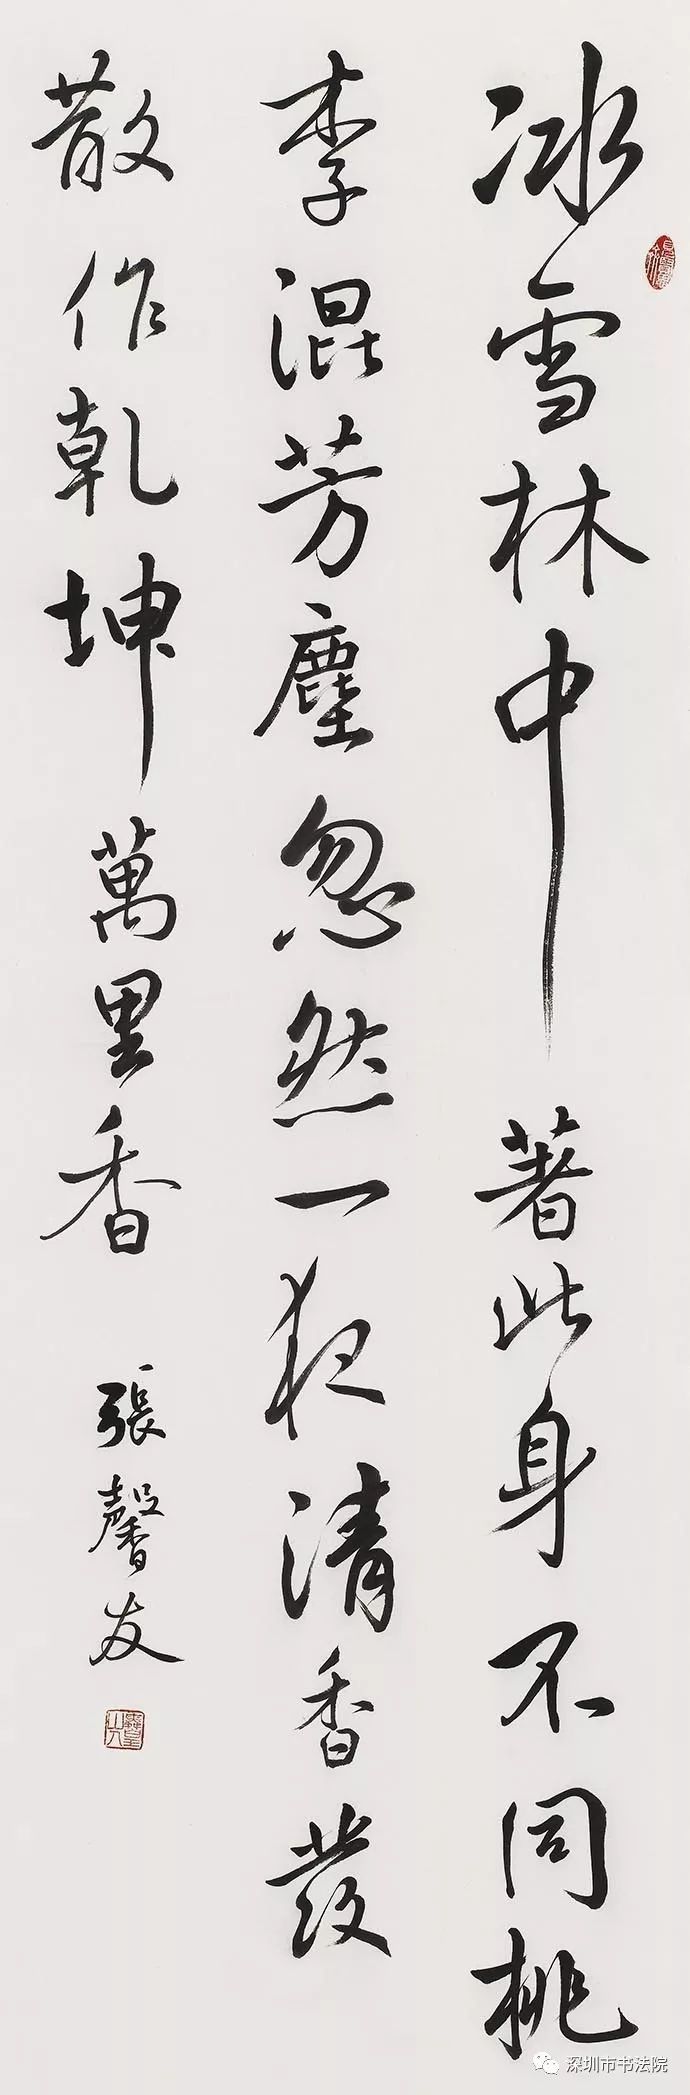 冰雪林中著此身不同桃
李混芳塵忽然一夜清香發
散作乾坤萬里香
張馨友
深圳市书法院